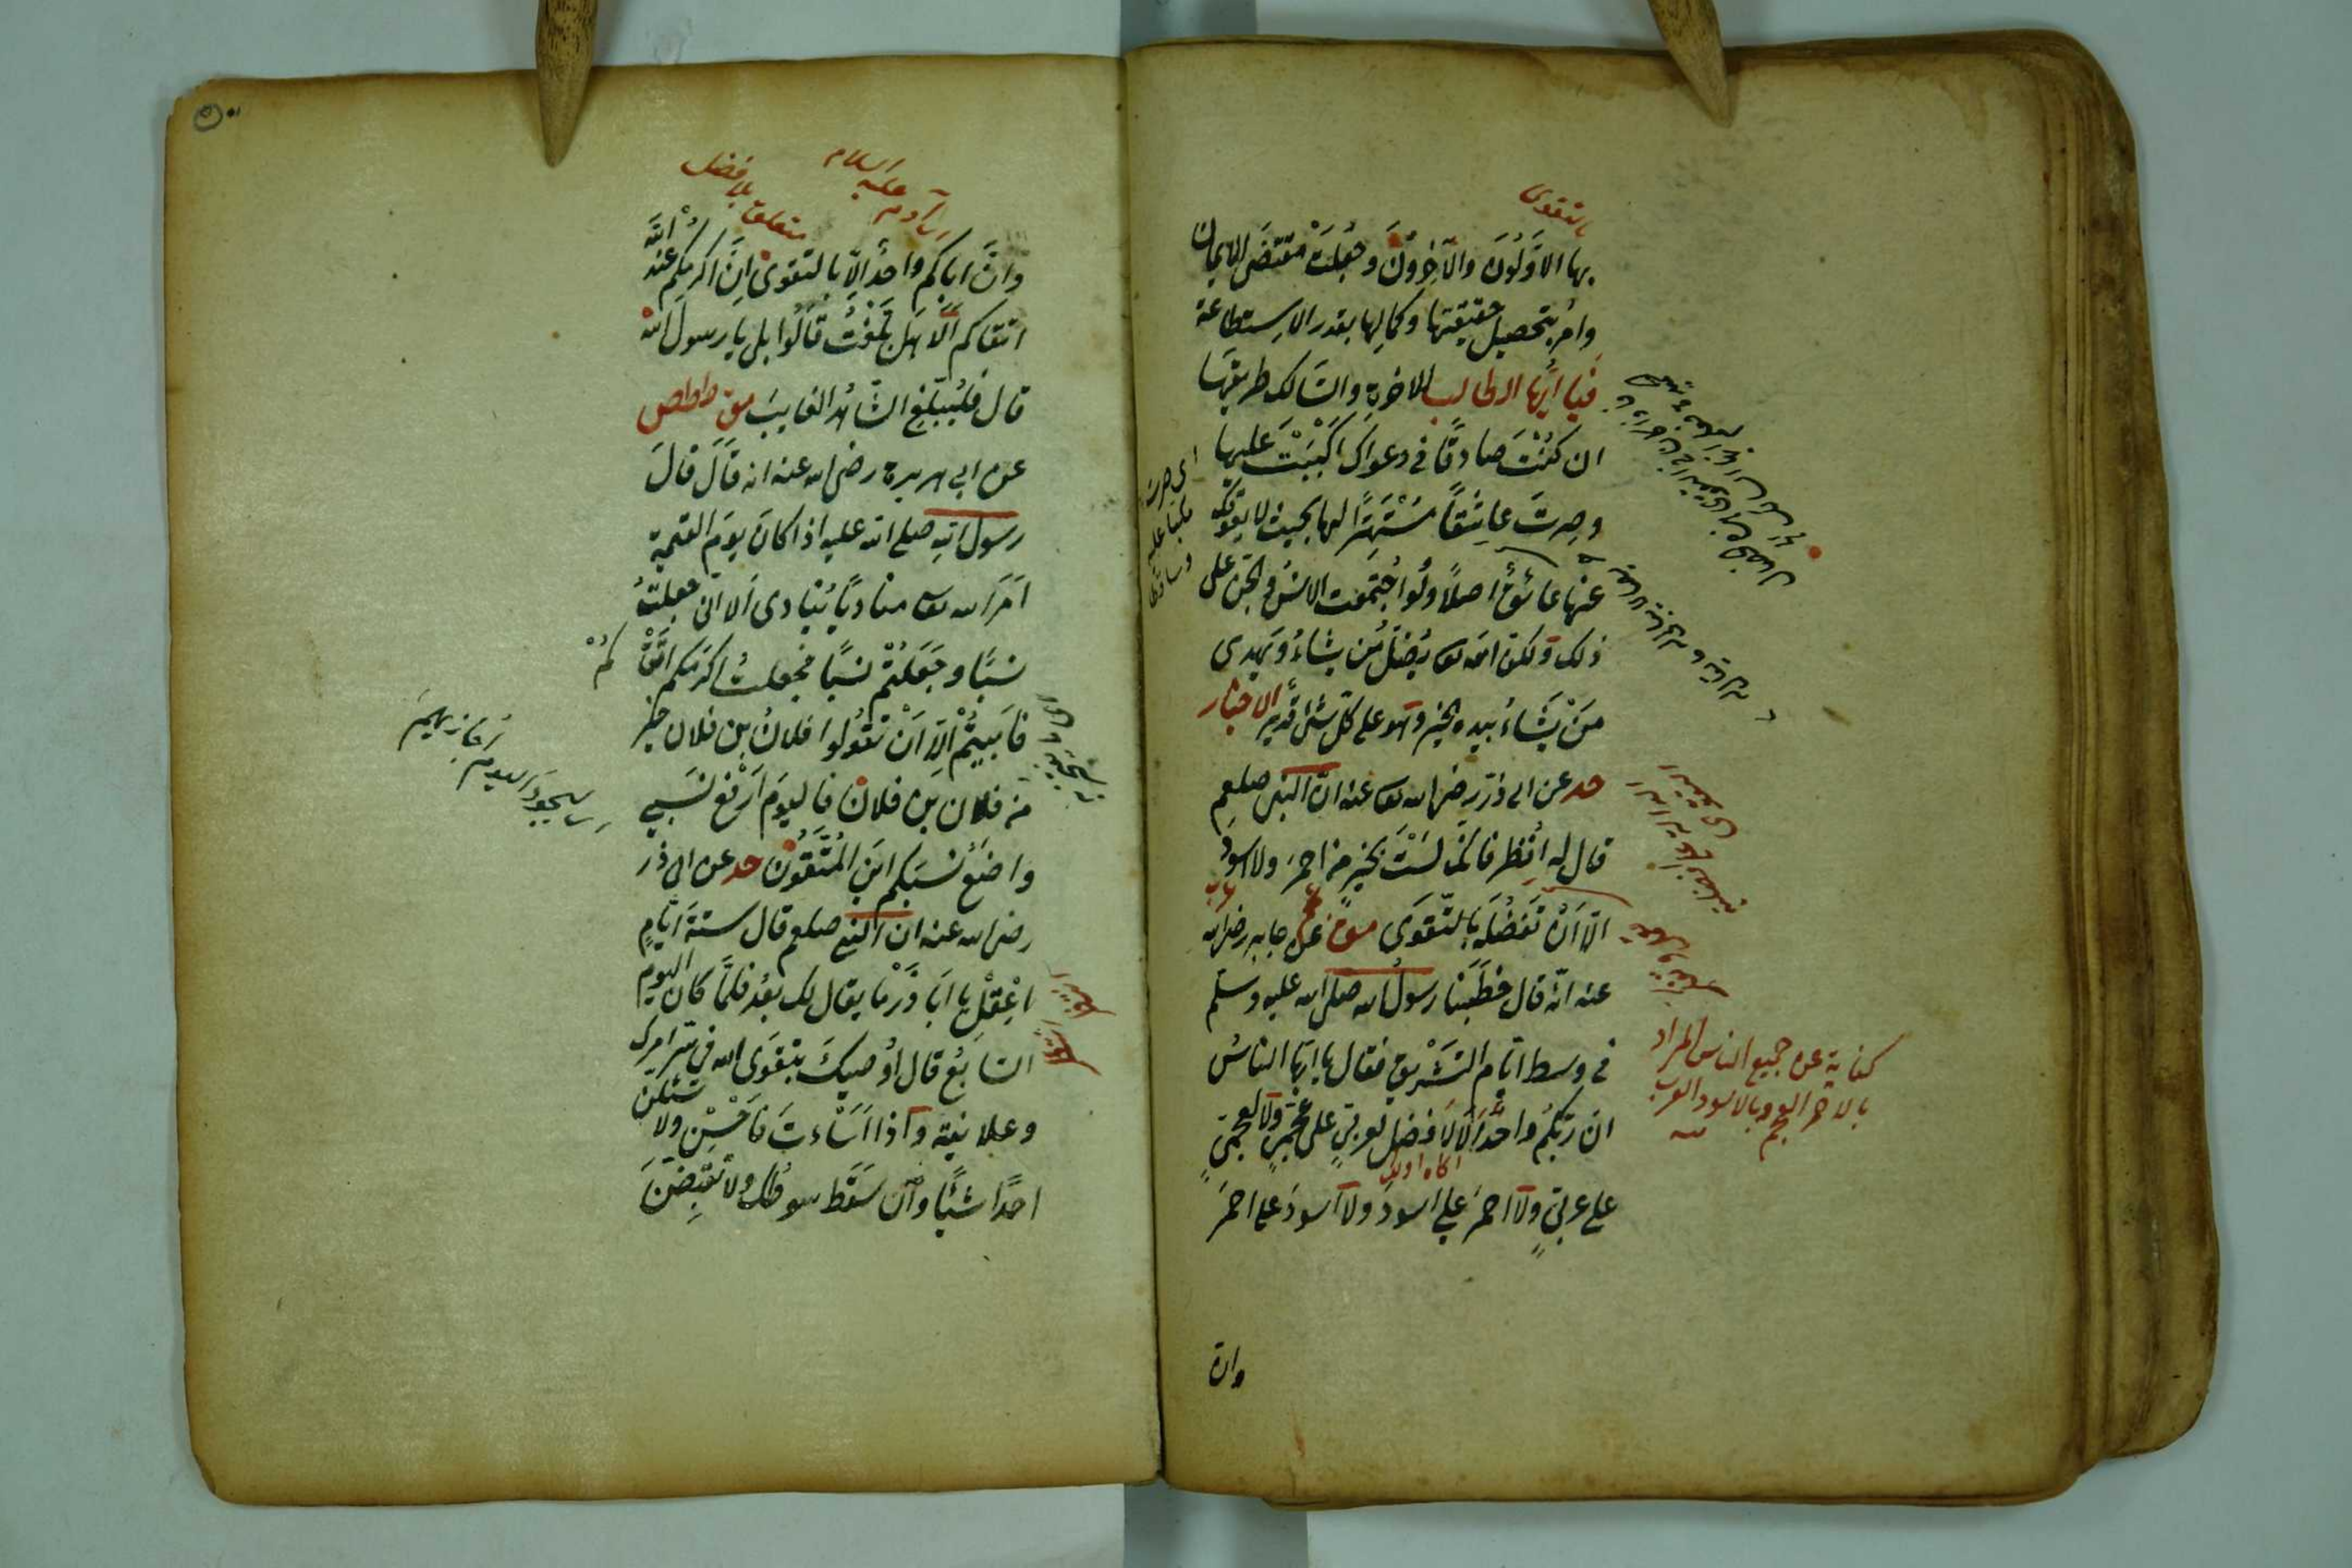 بالتقوى
بها الاَوَّلُونَ والآخِرونَ وجُعِلَتْ مقتضَى الايمان
وامر بتحصيل حقيقتها وكمالها بقدر الاستطاعة
فيا ايُّها الطالب للاخرة والسالك طريقها
ان كُنْتَ صادقًا في دعواك اكْبَبْتَ عليها
وصرتَ عاشِقًا مُسْتَهْتِرًا لها بحيث لا يعوقك
عنها عائقٌ اصلاً ولو اجْتمعت الانسُ والجنّ على
ذلك ولكن الله تعا يُضِلُّ من يشاءُ ويهدى
مَنْ يَشَاءُ بيده الخير وهو على كلّ شئ قدير الاخبار
حد عن ابى ذرّ رضى الله تعا عنه انّ النبى صلعم
قال له اُنظر فانك لَسْتَ بخيرٍ من احمرَ ولا اسودَ
الّا اَنْ تَفضُلَه بالتّقوَى عن جابر رضى الله
عنه انّه قال خطَبَنا رسولُ الله صلى الله عليه وسلم
فى وسط ايّام التَشْريق فقال يا ايّها الناسُ
ان ربّكُم واحدٌ اَلَا لَا فضل لعربيّ على عجميّ ولا لعجميّ
على عربيّ ولا احمرَ على اسودَ ولا اسودَ على احمرَ
كناية عن جميع الناس المراد
بالاحمر العجم وبالاسود العرب
وان
اى آدم عليه السلام
متعلق بلا فضل
وانَّ اباكم واحدٌ الّا بالتقوى اِنَّ اكرمكم عند الله
اتقاكم اَلَا هَل بَلّغْتُ قَالُوا بلى يا رسولَ الله
قال فليُبَلّغِ الشّاهدُ الغايبَ
عن ابى هريرة رضى الله عنه انه قَالَ قالَ
رسول الله صلى الله عليه اذا كان يومَ القيمة
اَمَرَ الله تعا مناديًا يُنادى اَلا انّى جعلتُ
نسبًا وجَعَلْتُمْ نسبًا فجعلتُ اكرمكم اتقَا
كُمْ
فأَبَيْتُمْ الّا اَنْ تَقُولُوا فلانُ بن فلان خير
من فلان بن فلان فاليومَ اَرْفع نسَبى
واضَعُ نسَبَكم اينَ المُتَّقُونَ حد عن ابى ذر
رضى الله عنه ان النبى صلعم قال ستة ايّامٍ
اعْقِلْ يا اَبَا ذَرّ ما يقال لك بعدُ فلمَّا كان اليوم
السّابعُ قال اُوصيكَ بتقوَى الله فى سرّ امرك
وعلانيته وَاذا اَسَاءتَ فَاحْسِنْ ولا تسئلنّ
احدًا شيئًا وان سَقَط سوطك ولا تقبِضَنَّ